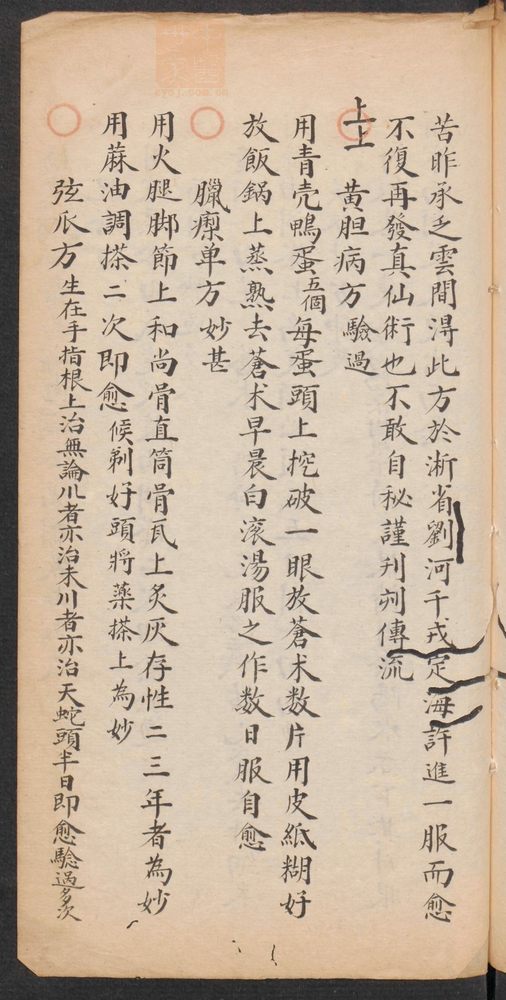 苦昨承乏雲間淂此方於淅省劉河千戎定海許進一服而愈
不復再發真仙術也不敢自秘謹刋刻傳流
上上 黃胆病方驗過
用青壳鴨蛋五個每蛋頭上挖破一眼放蒼术数片用皮紙糊好
放飯鍋上蒸熟去蒼术早晨白滚湯服之作数日服自愈
臘瘰单方妙甚
用火腿脚節上和尚骨直筒骨瓦上炙灰存性二三年者為妙
用蔴油調搽二次即愈候剃好頭將藥搽上為妙
弦爪方生在手指根上治無論川者亦治未川者亦治天蛇頭半日即愈驗過多次